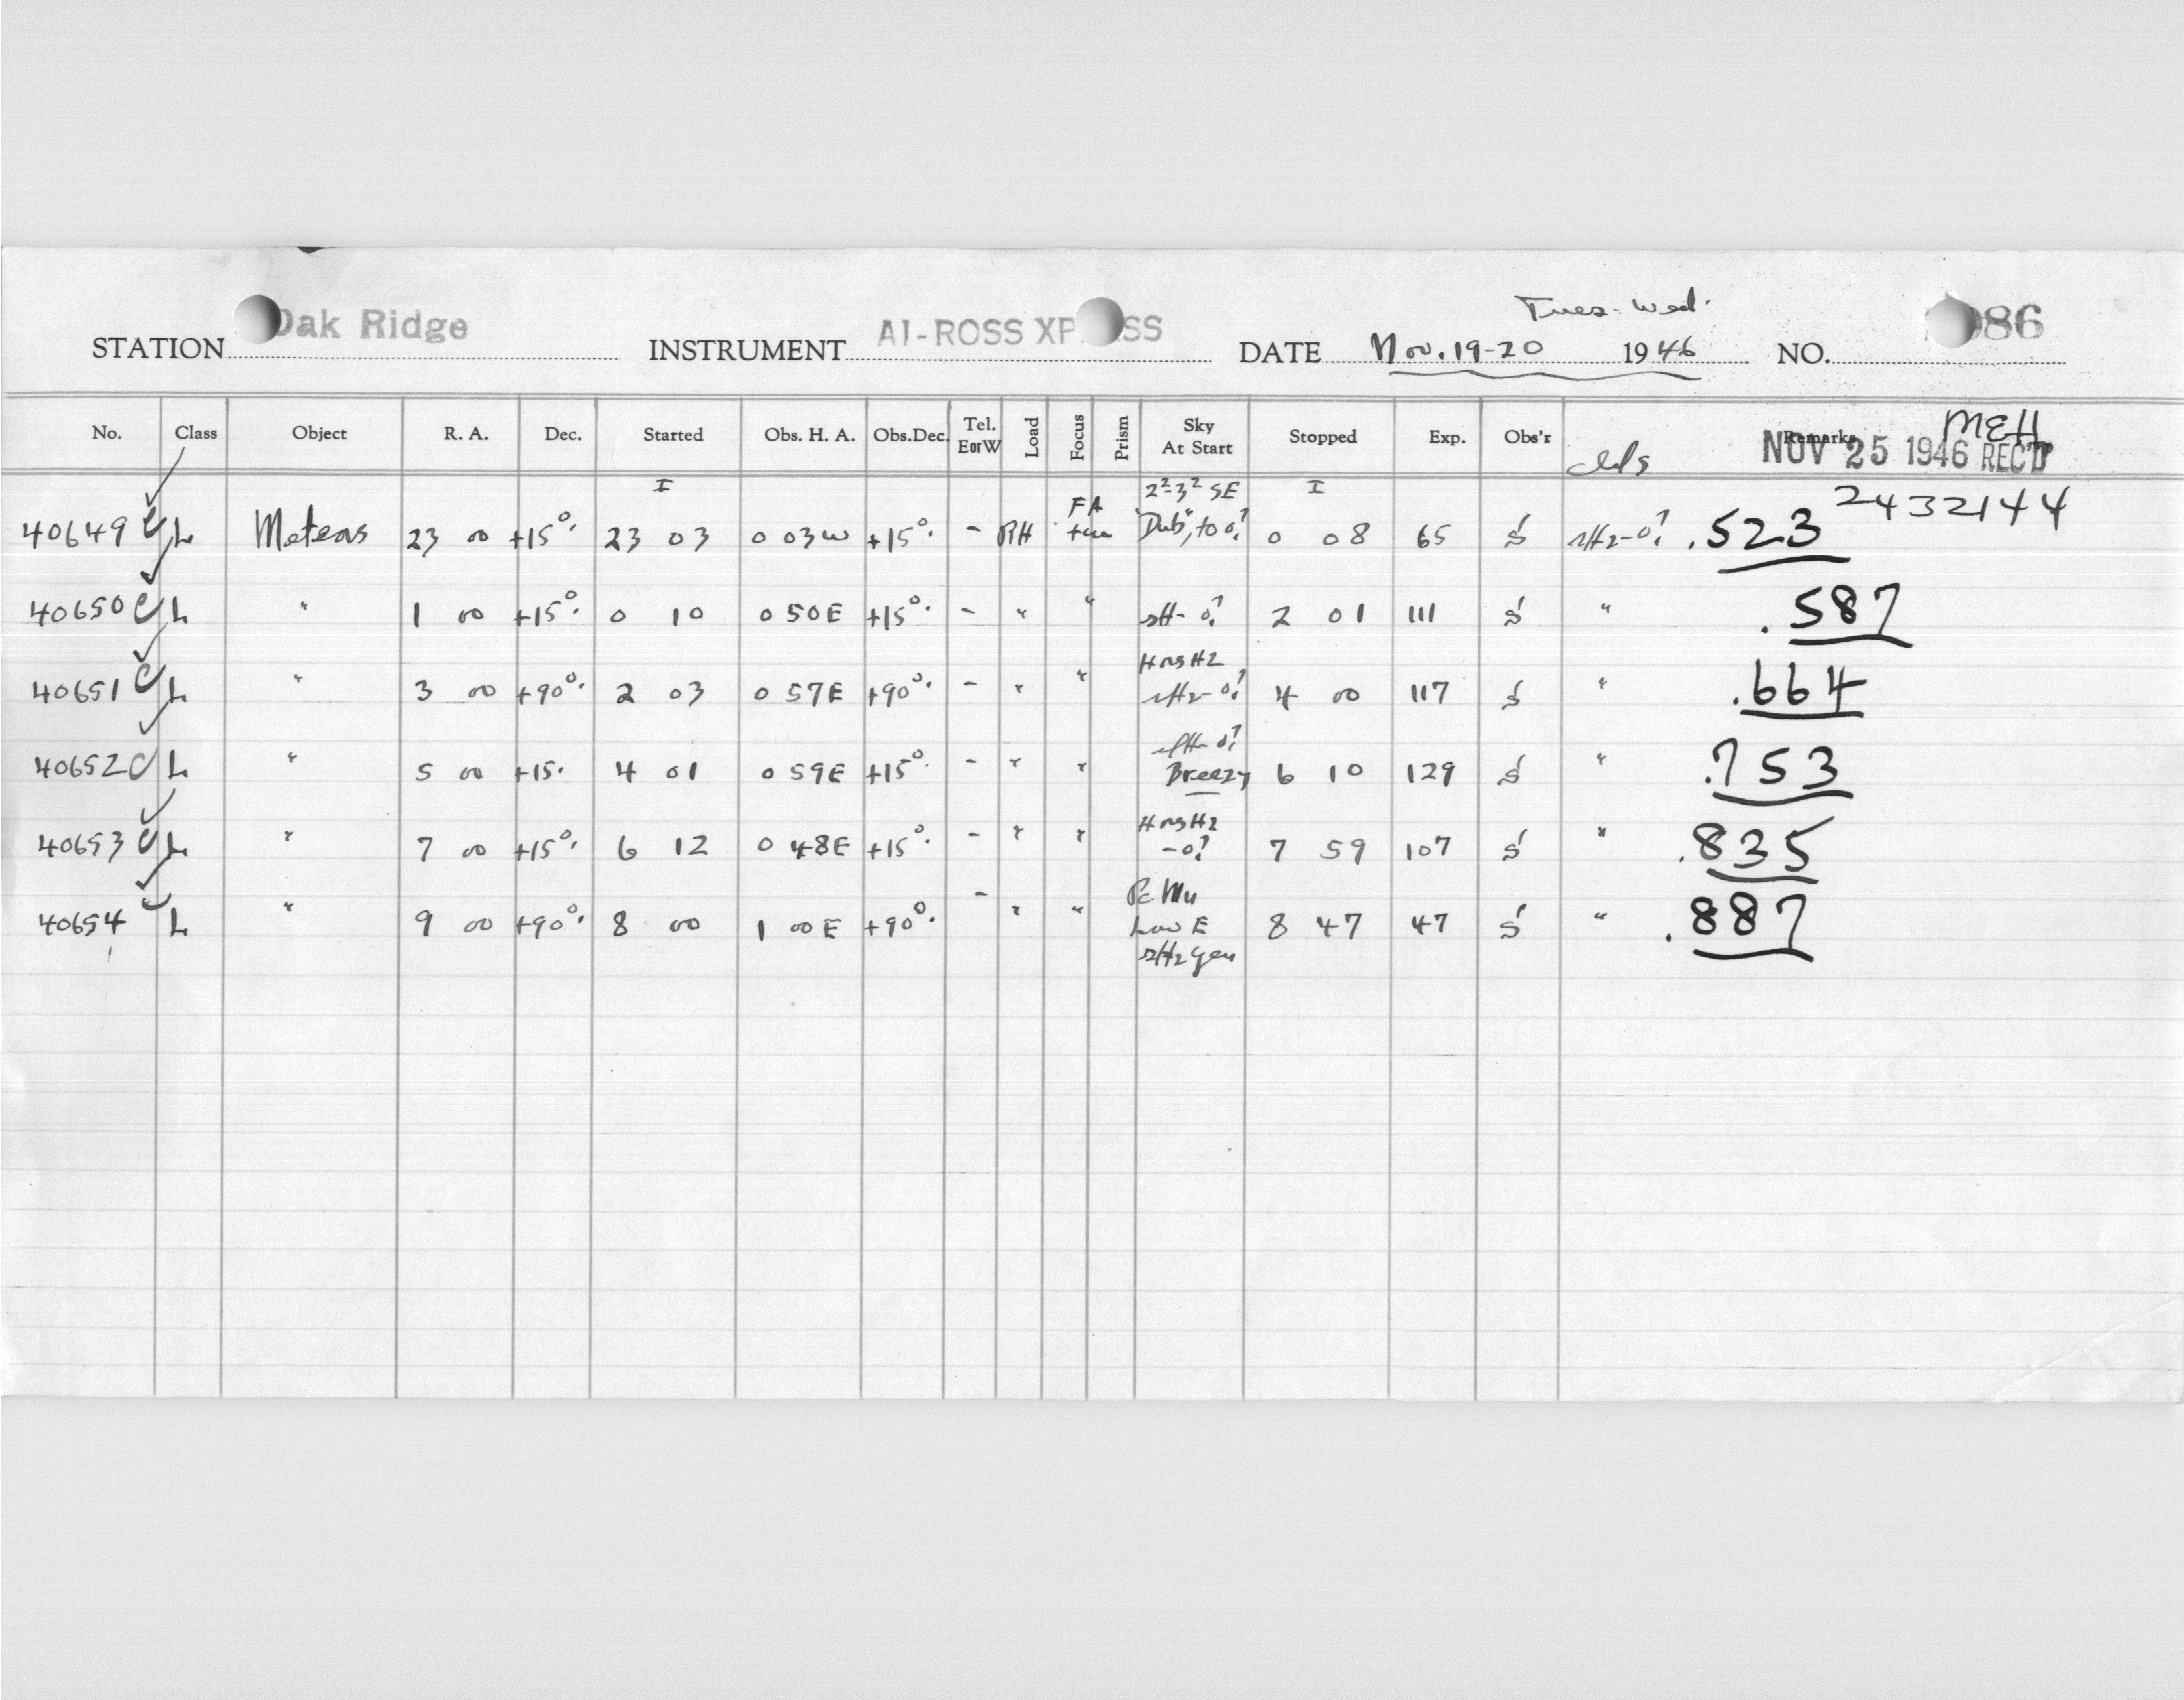 Tues-Wed.
STATION Oak Ridge INSTRUMENT AI-ROSS XP SS DATE Nov. 19-20 1946 NO. 86
No. Class Object R. A. Dec. Started Obs. H. A. Obs.Dec. Tel. E or W Load Focus Prism Sky At Start Stopped Exp. Obs'r Remarks
MEH
clds NOV 25 1946 REC'D
40649 L Meteors 23 00 +15° 23 03 0 03W +15° - RH FA 2²-3² SE 0 08 65 S .523 2432144
40650 L " 1 00 +15° 0 10 0 50E +15° - " " 2 01 111 S " .587
40651 L " 3 00 +90° 2 03 0 57E +90° - " " 4 00 117 S " .664
40652 L " 5 00 +15 4 01 0 59E +15° - " " Breezy 6 10 129 S " .753
40653 L " 7 00 +15° 6 12 0 48E +15° - " " 7 59 107 S " .835
40654 L " 9 00 +90° 8 00 1 00E +90° - " " Low E 8 47 47 S " .887